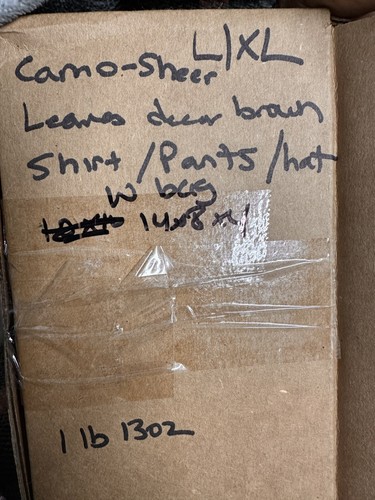 Camo-Sheer L/XL
Leaves deer brown
Shirt/Pants/hat
w bag
14x8x
1 lb 13oz